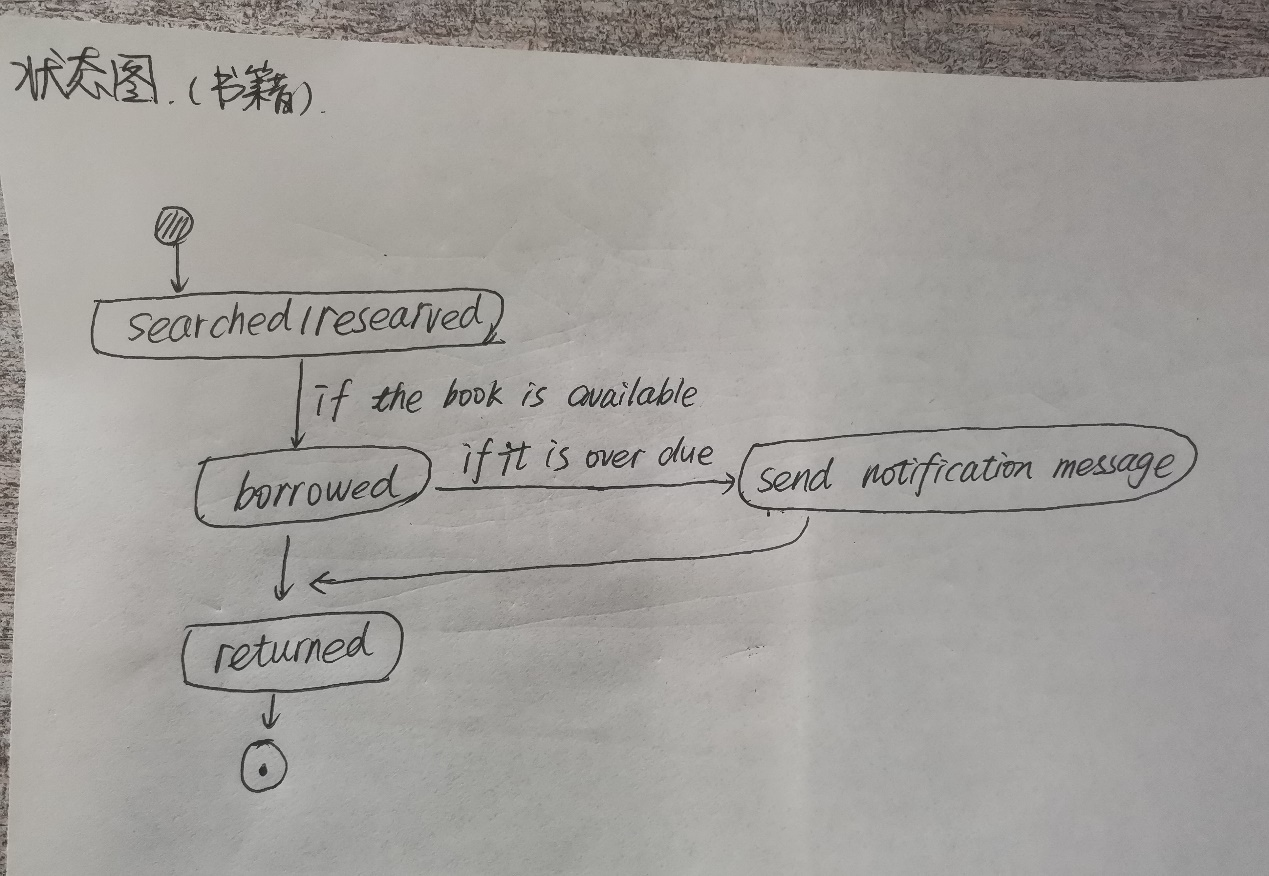 状态图.(书籍).
searched/researved
if the book is available
if it is over due
borrowed
send notification message
returned